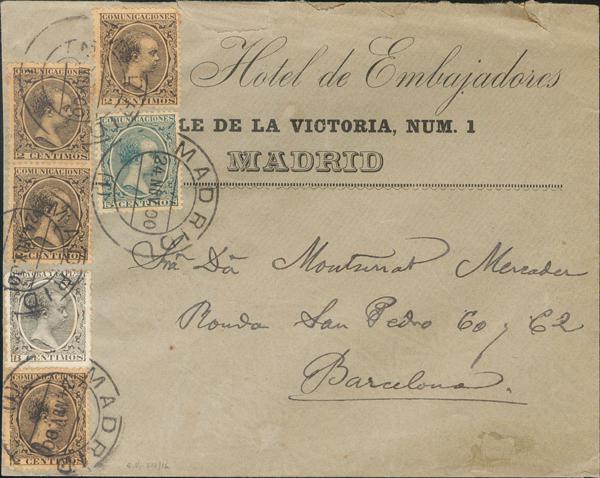 COMUNICACIONES
2 CENTIMOS
COMUNICACIONES
2 CENTIMOS
2 CENTIMOS
5 CENTIMOS
CENTIMOS
COMUNICACIONES
2 CENTIMOS
MADRID
24 NOV 00
MADRID
Hotel de Embajadores
LE DE LA VICTORIA, NUM. 1
MADRID
Sra Da Montserrat Mercader
Ronda San Pedro 60 y 62
Barcelona.